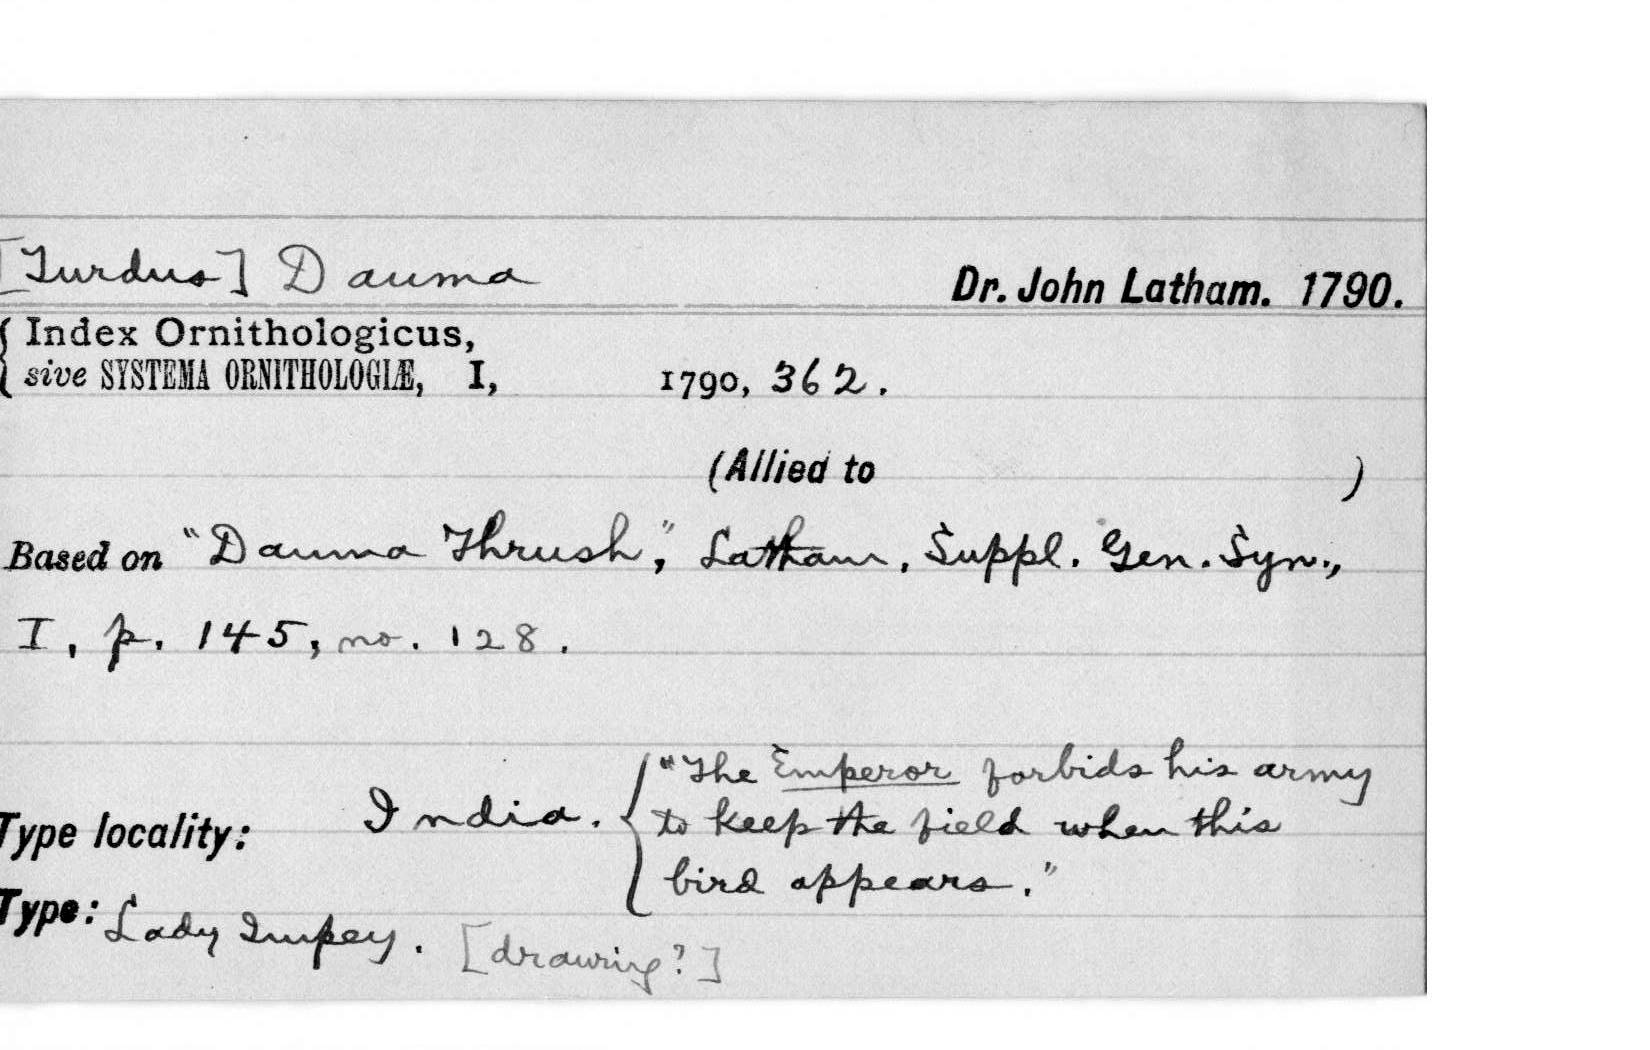 [Turdus] Dauma
Dr. John Latham. 1790.
Index Ornithologicus,
sive SYSTEMA ORNITHOLOGIÆ, I, 1790, 362.
(Allied to )
Based on "Dauma Thrush," Latham, Suppl. Gen. Syn.,
I, p. 145, no. 128.
"The Emperor forbids his army
Type locality: India. to keep the field when this
bird appears."
Type: Lady Impey. [drawing?]